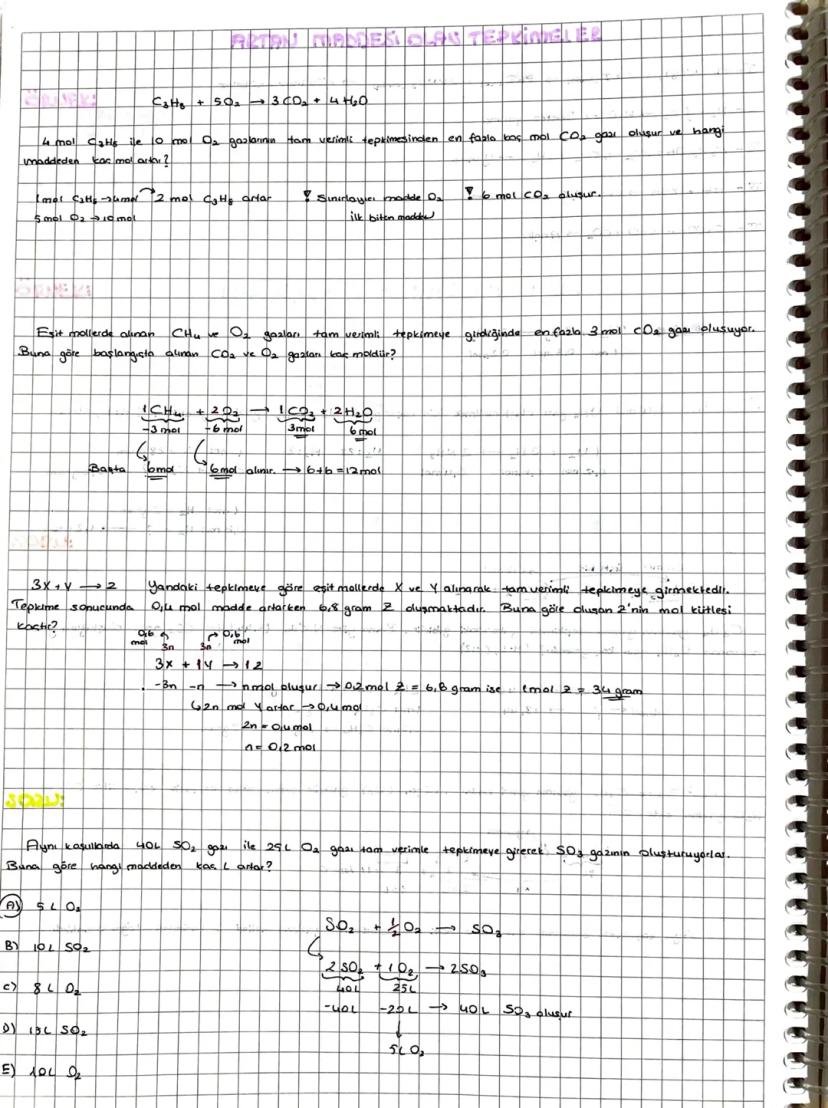 ARTAN MADDESİ OLAN TEPKİMELER
ÖRNEK:
C₃H₈ + 5O₂ → 3CO₂ + 4H₂O
4 mol C₃H₈ ile 10 mol O₂ gazlarının tam verimli tepkimesinden en fazla kaç mol CO₂ gazı oluşur ve hangi
maddeden kaç mol artar?
1mol C₃H₈ → 4mol 2 mol C₃H₈ artar ! Sınırlayıcı madde O₂ ! 6 mol CO₂ oluşur.
5 mol O₂ → 10 mol ilk biten madde
ÖRNEK:
Eşit mollerde alınan CH₄ ve O₂ gazları tam verimli tepkimeye girdiğinde en fazla 3 mol CO₂ gazı oluşuyor.
Buna göre başlangıçta alınan CO₂ ve O₂ gazları kaç moldür?
1CH₄ + 2O₂ → 1CO₂ + 2H₂O
-3 mol -6 mol 3mol 6 mol
Başta 6mol 6mol alınır. → 6+6 = 12 mol
3X + Y → Z Yandaki tepkimeye göre eşit mollerde X ve Y alınarak tam verimli tepkimeye girmektedir.
Tepkime sonucunda 0,4 mol madde artarken 6,8 gram Z oluşmaktadır. Buna göre oluşan Z'nin mol kütlesi
kaçtır?
0,6 mol 0,6 mol
3n 3n
3X + 1Y → 1Z
-3n -n → n mol oluşur → 0,2 mol Z = 6,8 gram ise 1mol Z = 34 gram
2n mol Y artar → 0,4 mol
2n = 0,4 mol
n = 0,2 mol
SORU:
Aynı koşullarda 40L SO₂ gazı ile 25L O₂ gazı tam verimle tepkimeye girerek SO₃ gazının oluşturuyorlar.
Buna göre hangi maddeden kaç L artar?
A) 5 L O₂
B) 10 L SO₂
C) 8 L O₂
D) 15 L SO₂
E) 10L O₂
SO₂ + ½O₂ → SO₃
2SO₂ + 1O₂ → 2SO₃
40L 25L
-40L -20L → 40L SO₃ oluşur
5L O₂